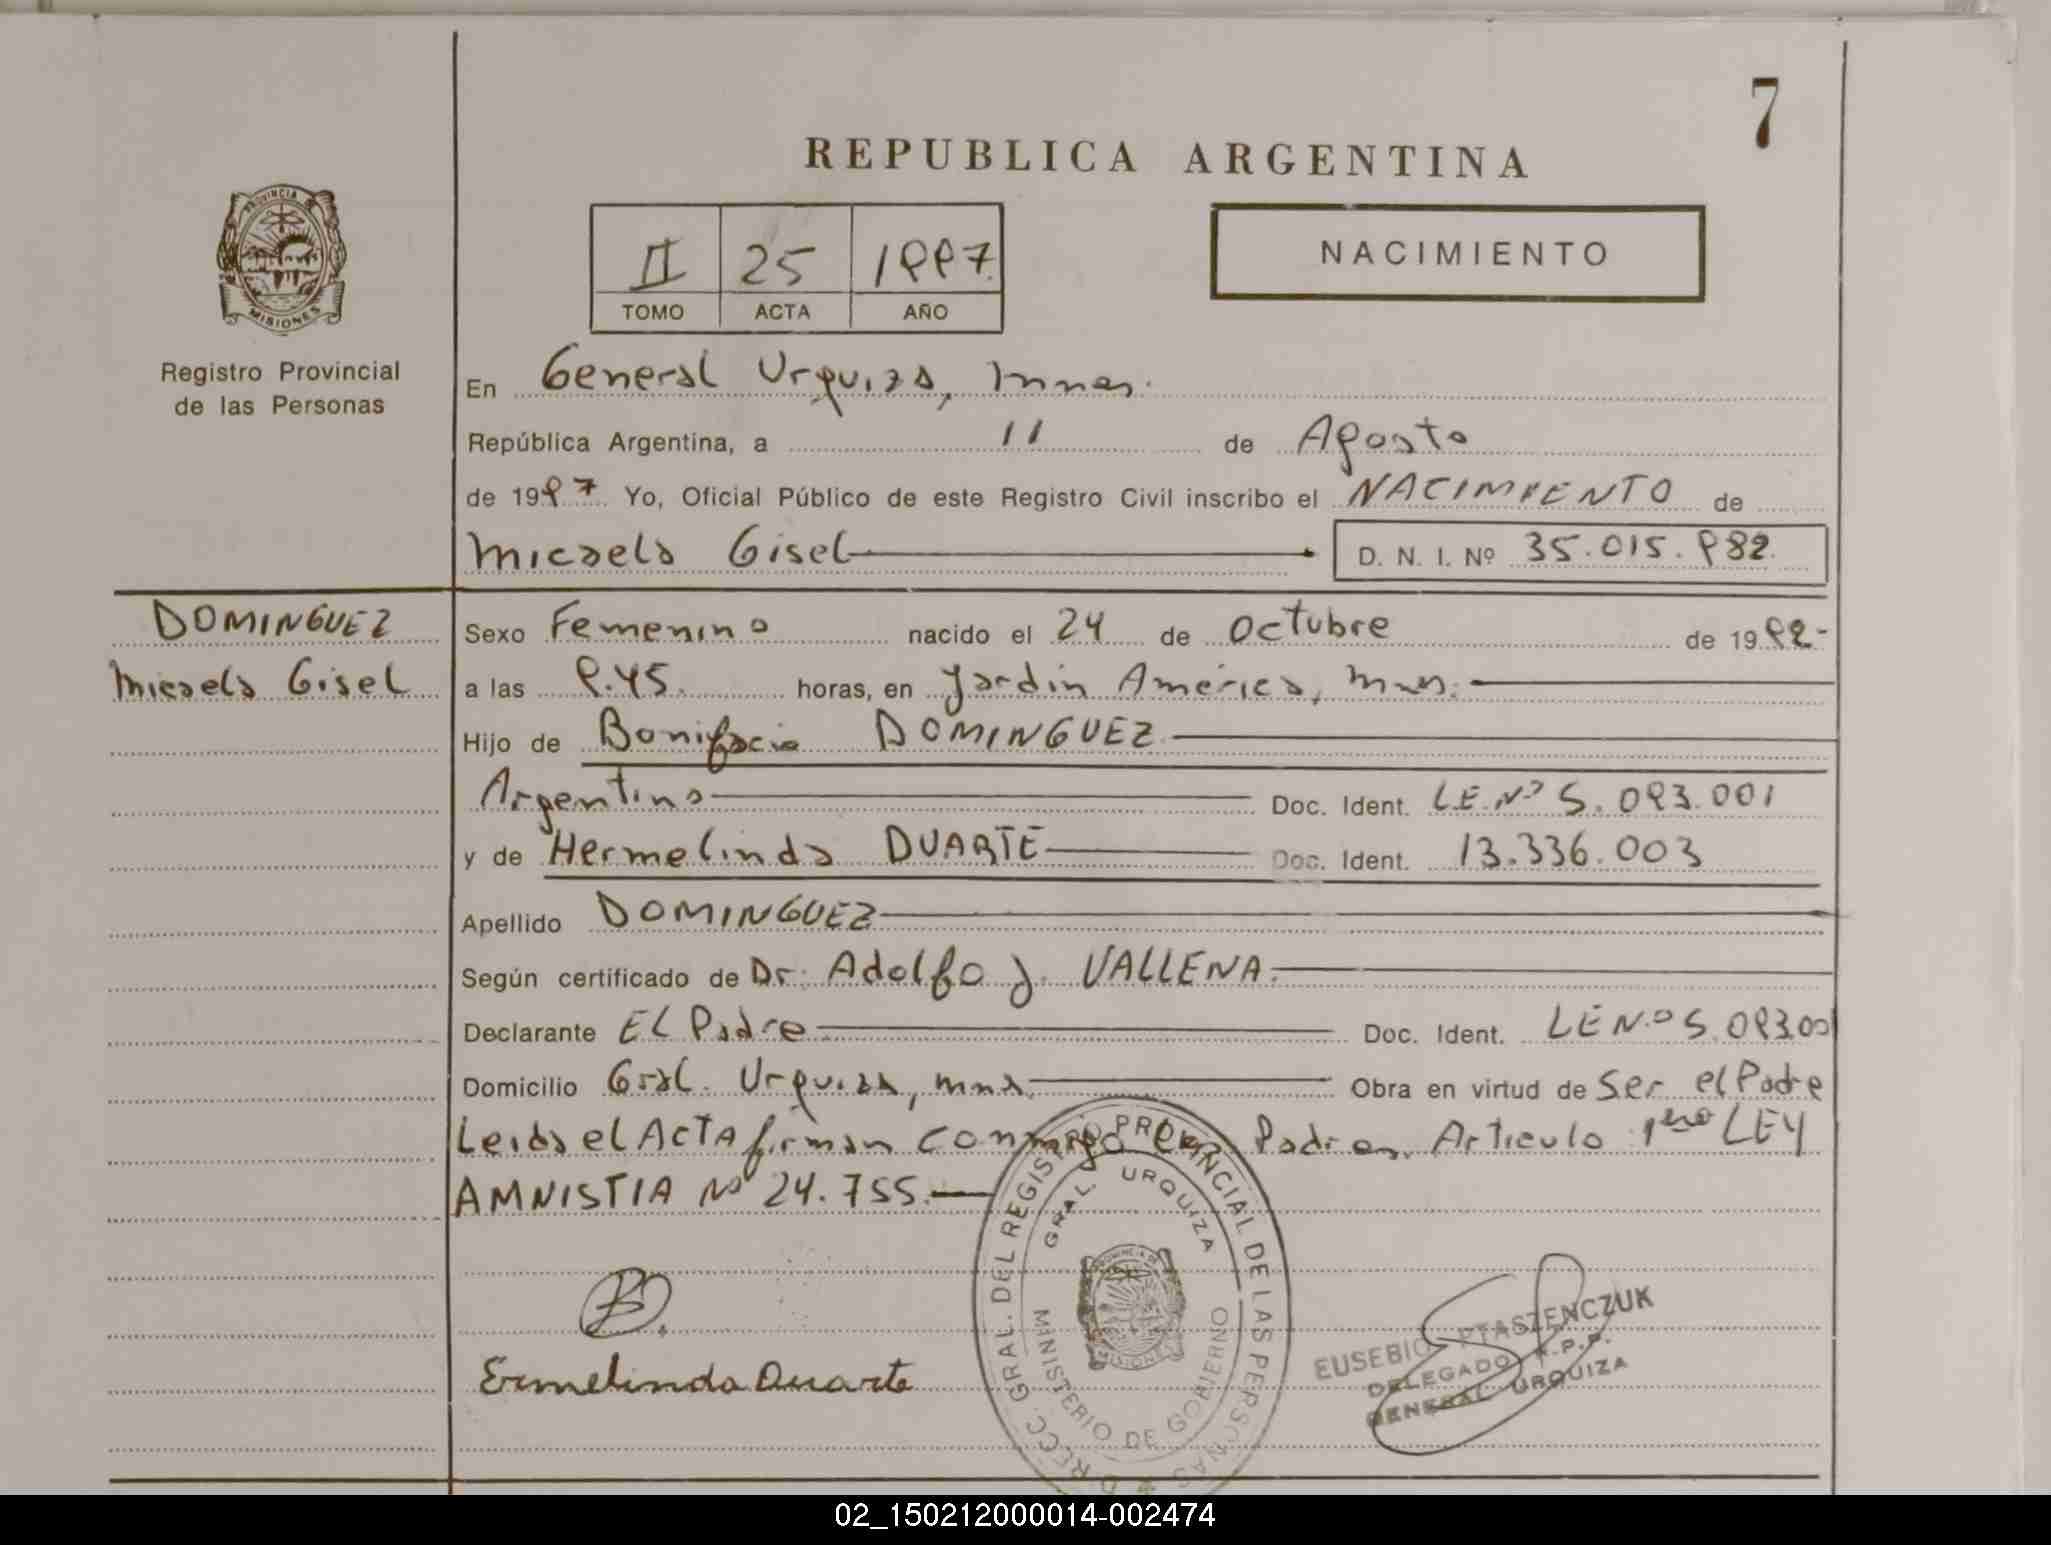 7
REPUBLICA ARGENTINA
PROVINCIA DE
MISIONES
Registro Provincial
de las Personas
II 25 1997
TOMO ACTA AÑO
NACIMIENTO
En General Urquiza, Mnes.
República Argentina, a 11 de Agosto
de 1997 Yo, Oficial Público de este Registro Civil inscribo el NACIMIENTO de
Micaela Gisel D. N. I. Nº 35.015.982
DOMINGUEZ
Micaela Gisel
Sexo Femenino nacido el 24 de Octubre de 1992-
a las 9.45. horas, en Jardin America, Mnes.
Hijo de Bonifacio DOMINGUEZ
Argentino Doc. Ident. LE.Nº 5.093.001
y de Hermelinda DUARTE Doc. Ident. 13.336.003
Apellido DOMINGUEZ
Según certificado de Dr. Adolfo J. VALLENA.
Declarante EL Padre Doc. Ident. LE Nº 5.093.00
Domicilio Gral. Urquiza, Mnes. Obra en virtud de Ser el Padre
Leida el ACTA firman conmigo los Padres. Articulo 1ero LEY
AMNISTIA Nº 24.755.
B.
Ermelinda Duarte
DIRECC. GRAL. DEL REGISTRO PROVINCIAL DE LAS PERSONAS
GRAL. URQUIZA
MINISTERIO DE GOBIERNO
EUSEBIO PTASZENCZUK
DELEGADO R.P.P.
GENERAL URQUIZA
02_150212000014-002474